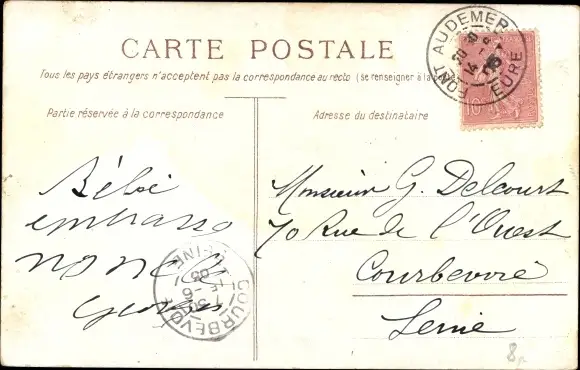 CARTE POSTALE
Tous les pays étrangers n'acceptent pas la correspondance au recto (se renseigner à la
Partie réservée à la correspondance
Adresse du destinataire
PONT AUDEMER
EURE
10
Bébé
embrasse
Georges
COURBEVOIE
SEINE
Monsieur G. Delcourt
70 Rue de l'Ouest
Courbevoie
Seine